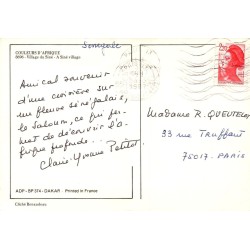 COULEURS D'AFRIQUE
5606 - Village du Siné - A Siné village
Sénégale
Amical souvenir
d'une croisière sur
un fleuve sénégalais,
le Saloum, ce qui per-
met de découvrir l'a-
frique profonde...
Claire-Yvonne Petitot
Madame R. QUEUTELOT
33 rue Truffaut
75017 - PARIS
ADP - BP 574 - DAKAR - Printed in France
Cliché Renaudeau